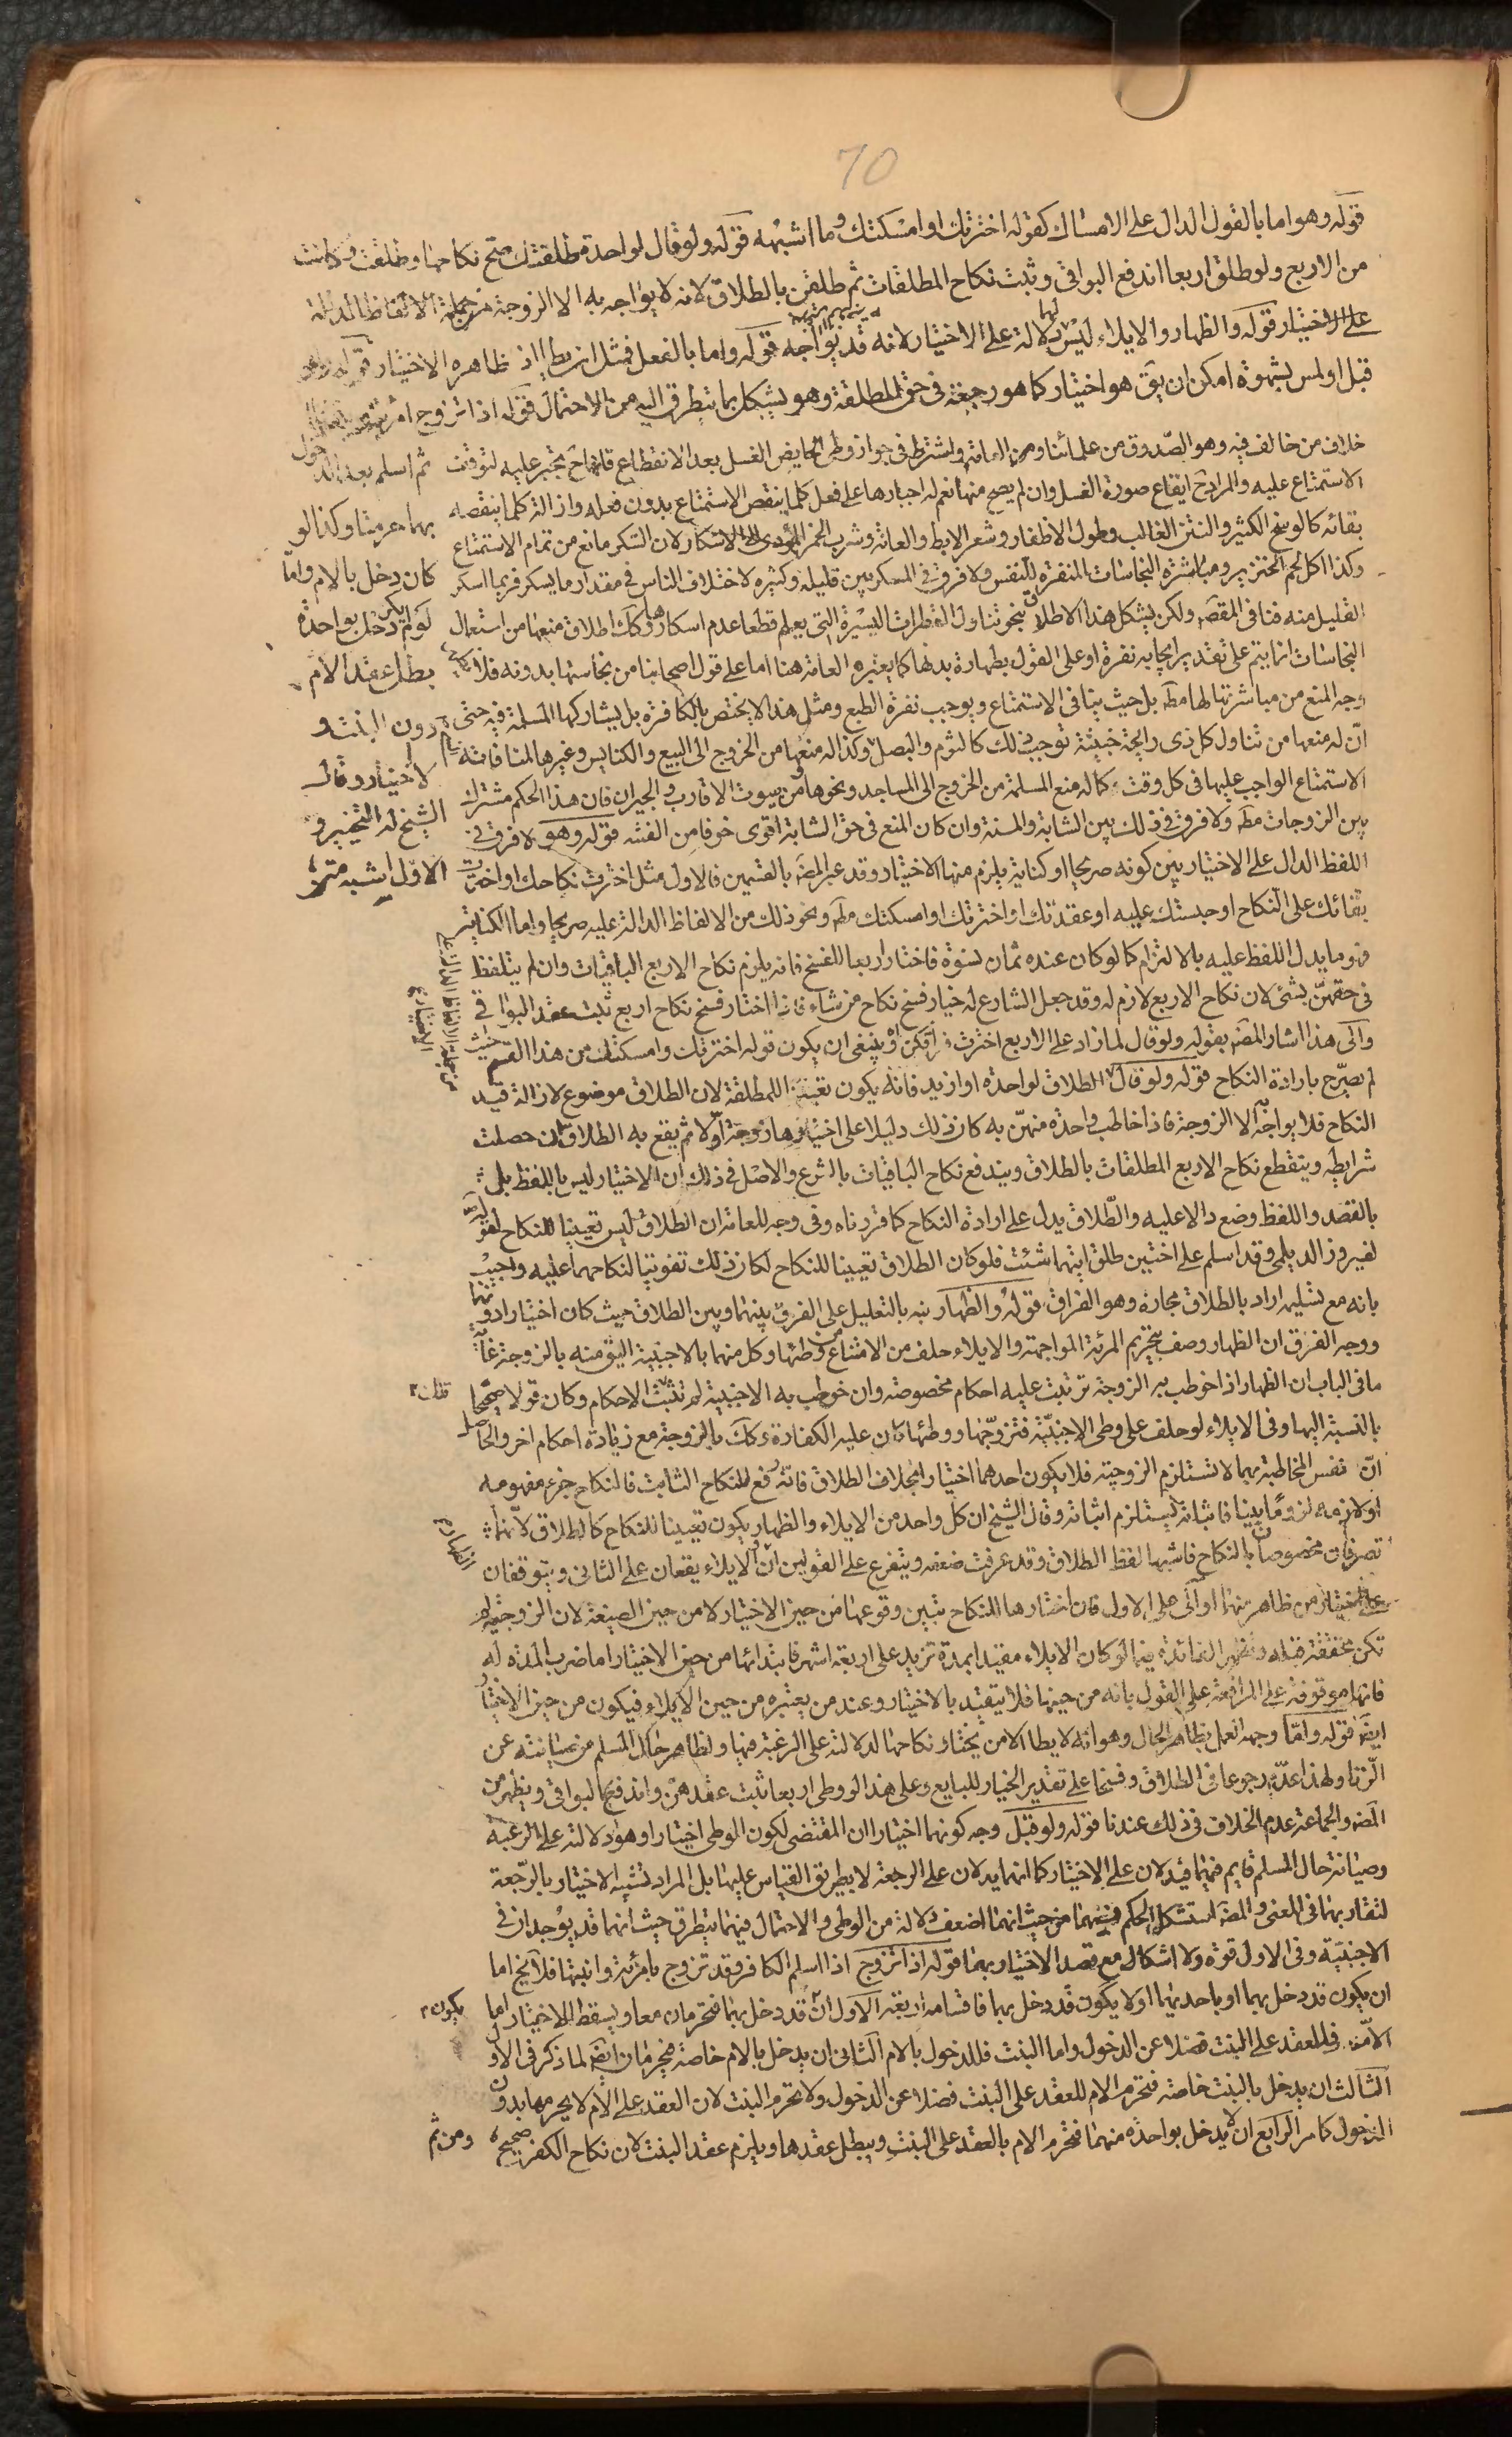 70
قوله وهو اما بالقول الدال على الامساك كقوله اخترتك او امسكتك وما اشبهه قوله ولو قال لواحدة طلقتك صح نكاحها وطلقت وكانت
من الاربع ولو طلق اربعا اندفع البواقي وثبت نكاح المطلقات ثم طلقن بالطلاق لانه لا يواجه به الا الزوجة
على الاختيار قوله والظهار والايلاء ليس لهما دلالة على الاختيار لانه قد يواجه قوله واما بالفعل فمثل ان يطا اذ ظاهره الاختيار
قبل او لمس بشهوة امكن ان يق هو اختيار كما هو رجعة في حق المطلقة وهو يشكل بما يتطرق اليه من الاحتمال قوله اذا تزوج امرئة
خلاف من خالف فيه وهو الصدوق من علمائنا ومن العامة واشترط في جواز وطي الحايض الغسل بعد الانقطاع فلها ح يجبر عليه لتوقف
الاستمتاع عليه والمراد ح ايقاع صورة الغسل وان لم يصح منها نعم له اجبارها على فعل كلما ينقص الاستمتاع بدون فعله وازالة كلما ينقصه
بقائه كالوسخ الكثير والنتن الغالب وطول الاظفار وشعر الابط والعانة وشرب الخمر المؤدى الى الاسكار لان السكر مانع من تمام الاستمتاع
وكذا اكل لحم الخنزير ومباشرة النجاسات المنفرة للنفس ولا فرق في المسكر بين قليله وكثيره لاختلاف الناس في مقدار ما يسكر فربما اسكر
القليل منه فنافى المقصد ولكن يشكل هذا الاطلاق بنحو تناول القطرات اليسيرة التي يعلم قطعا عدم اسكارها وكك اطلاق منعها من استعمال
النجاسات انما يتم على تقدير ايجابه نفرة او على القول بطهارة بدنها كما يعتبره العامة هنا اما على قول اصحابنا من نجاستها بدونه فلا
وجه المنع من مباشرتها لها مطه بل حيث ينافى الاستمتاع ويوجب نفرة الطبع ومثل هذا لا يختص بالكافرة بل يشاركها المسلمة فيه حتى
ان له منعها من تناول كل ذى رايحة خبيثة توجب ذلك كالثوم والبصل وكذا له منعها من الخروج الى البيع والكنايس وغيرها لمنافاته
الاستمتاع الواجب عليها في كل وقت كما له منع المسلمة من الخروج الى المساجد ونحوها ومن بيوت الاقارب والجيران فان هذا الحكم مشترك
بين الزوجات مطه ولا فرق في ذلك بين الشابة والمسنة وان كان المنع في حق الشابة اقوى خوفا من الفتنه قوله وهو لا فرق في
اللفظ الدال على الاختيار بين كونه صريحا او كناية يلزم منها الاختيار وقد عبر المصه بالقسمين فالاول مثل اخترت نكاحك او اخترت
بقائك على النكاح او حبستك عليه او عقدتك او اخترتك او امسكتك مطه ونحو ذلك من الالفاظ الدالة عليه صريحا واما الكناية
فهو ما يدل اللفظ عليه بالالتزام كما لو كان عنده ثمان نسوة فاختار اربعا للفسخ فانه يلزم نكاح الاربع الباقيات وان لم يتلفظ
في حقهن بشئ لان نكاح الاربع لازم له وقد جعل الشارع له خيار فسخ نكاح من شاء فاذا اختار فسخ نكاح اربع ثبت عقد البواقي
والى هذا اشار المصه بقوله ولو قال لما زاد على الاربع اخترت فراقكن اه وينبغي ان يكون قوله اخترتك وامسكتك من هذا القسم حيث
لم يصرح بارادة النكاح قوله ولو قال الطلاق لواحدة او ازيد فانه يكون تعيينا للمطلقة لان الطلاق موضوع لازالة قيد
النكاح فلا يواجه الا الزوجة فاذا خاطب واحدة منهن به كان ذلك دليلا على اختيارها زوجة اولا ثم يقع به الطلاق ان حصلت
شرايطه وينقطع نكاح الاربع المطلقات بالطلاق ويندفع نكاح الباقيات بالشرع والاصل في ذلك ان الاختيار ليس باللفظ بل
بالقصد واللفظ وضع دالا عليه والطلاق يدل على ارادة النكاح كما قررناه وفي وجه للعامة ان الطلاق ليس تعيينا للنكاح لقوله
لفيروز الديلمي وقد اسلم على اختين طلق ايتهما شئت فلو كان الطلاق تعيينا للنكاح لكان ذلك تفويتا لنكاحهما عليه واجيب
بانه مع تسليمه اراد بالطلاق مجازه وهو الفراق قوله والظهار نبه بالتعليل على الفرق بينهما وبين الطلاق حيث كان اختيارا دونهما
ووجه الفرق ان الظهار وصف بتحريم المرئة المواجهة والايلاء حلف من الامتناع من وطئها وكل منهما بالاجنبية اليق منه بالزوجة غاية
ما في الباب ان الظهار اذا خوطب به الزوجة ترتبت عليه احكام مخصوصة وان خوطب به الاجنبية لم تثبت الاحكام وكان قولا صحيحا
بالنسبة اليها وفي الايلاء لو حلف على وطى الاجنبية فتزوجها ووطئها كان عليه الكفارة وكك بالزوجة مع زيادة احكام اخر والحاصل
ان نفس المخاطبة بهما لا تستلزم الزوجية فلا يكون احدهما اختيارا بخلاف الطلاق فانه رفع للنكاح الثابت فالنكاح جزء مفهومه
او لازمه لزوما بينا فاثباته يستلزم اثباته وقال الشيخ ان كل واحد من الايلاء والظهار يكون تعيينا للنكاح كالطلاق لانهما
تصرفان مخصوصان بالنكاح فاشبها لفظ الطلاق وقد عرفت ضعفه ويتفرع على القولين ان الايلاء يقعان على الثانى ويتوقفان
على اختيار من ظاهر منها او آلى على الاول فان اختارها للنكاح تبين وقوعها من حين الاختيار لا من حين الصيغة لان الزوجية لم
تكن محققة قبله وتظهر الفائدة فيما لو كان الايلاء مقيدا بمدة تزيد على اربعة اشهر فابتدائها من حين الاختيار اما ضرب المدة له
فانها موقوفة على المرافعة على القول بانه من حينها فلا يتقيد بالاختيار وعند من يعتبره من حين الايلاء فيكون من حين الاختيار
ايضه قوله واما وجه العمل بظاهر الحال وهو انه لا يطا الا من يختار نكاحها لدلالته على الرغبة فيها ولظاهر حال المسلم من صيانته عن
الزنا ولهذا عد رجوعا في الطلاق وفسخا على تقدير الخيار للبايع وعلى هذا لو وطى اربعا ثبت عقدهن واندفع البواقي ويظهر من
المصه والجماعة عدم الخلاف في ذلك عندنا قوله ولو قبل وجه كونهما اختيارا ان المقتضى لكون الوطى اختيارا وهو دلالته على الرغبة
وصيانة حال المسلم قايم فيهما فيدلان على الاختيار كما انهما يدلان على الرجعة لا بطريق القياس عليها بل المراد تشبيه الاختيار بالرجعة
لتقاربهما في المعنى والمصه استشكل الحكم فيهما من حيث انهما اضعف دلالة من الوطى والاحتمال فيهما يتطرق حيث انهما قد يوجدان في
الاجنبية وفي الاول قوة ولا اشكال مع قصد الاختيار بهما قوله اذا تزوج اذا اسلم الكافر وقد تزوج بامرئة وابنتها فلا يخ اما
ان يكون قد دخل بهما او باحديهما او لا يكون قد دخل بهما فاقسامه اربعة الاول ان قد دخل بهما فتحرمان معا ويسقط الاختيار اما
الام فللعقد على البنت فضلا عن الدخول واما البنت فللدخول بالام الثانى ان يدخل بالام خاصة فيحرمان ايضه لما ذكر في الاول
الثالث ان يدخل بالبنت خاصة فتحرم الام للعقد على البنت فضلا عن الدخول ولا تحرم البنت لان العقد على الام لا يحرمها بدون
الدخول كما مر الرابع ان لا يدخل بواحدة منهما فتحرم الام بالعقد على البنت ويبطل عقدها ويلزم عقد البنت لان نكاح الكفر صحيح
ومن ثم
ثم اسلم بعد الدخول
بهما حرمتا وكذا لو
كان دخل بالام واما
لو لم يكن دخل بواحدة
بطل عقد الام
دون البنت و
لا اختيار وقال
الشيخ له التخيير و
الاول اشبه متن
من جملة الالفاظ الدالة على
الاختيار
قلت
الظهار
يكون